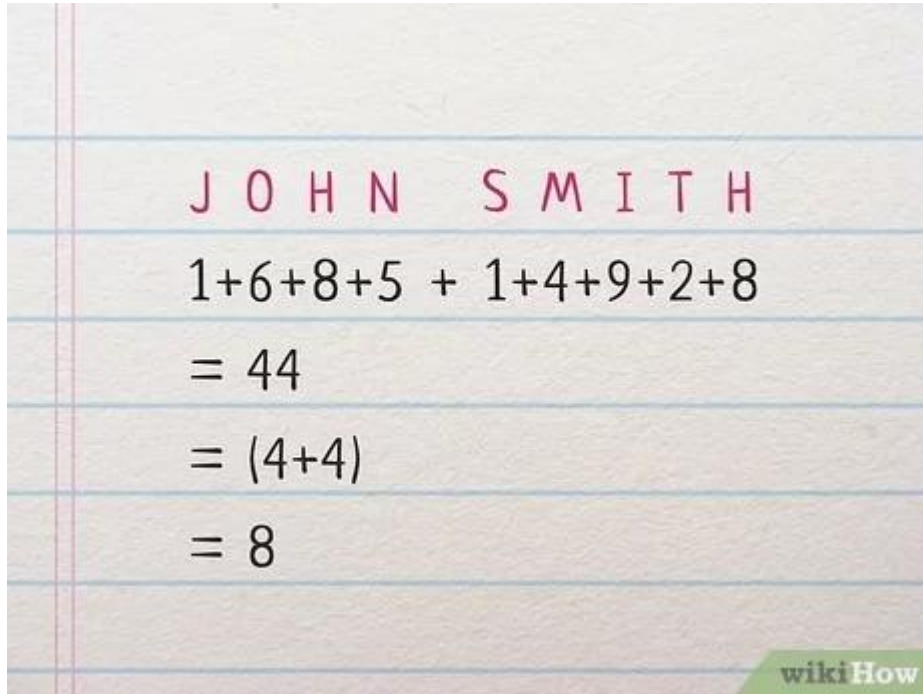 JOHN SMITH
1+6+8+5 + 1+4+9+2+8
= 44
= (4+4)
= 8
wikiHow